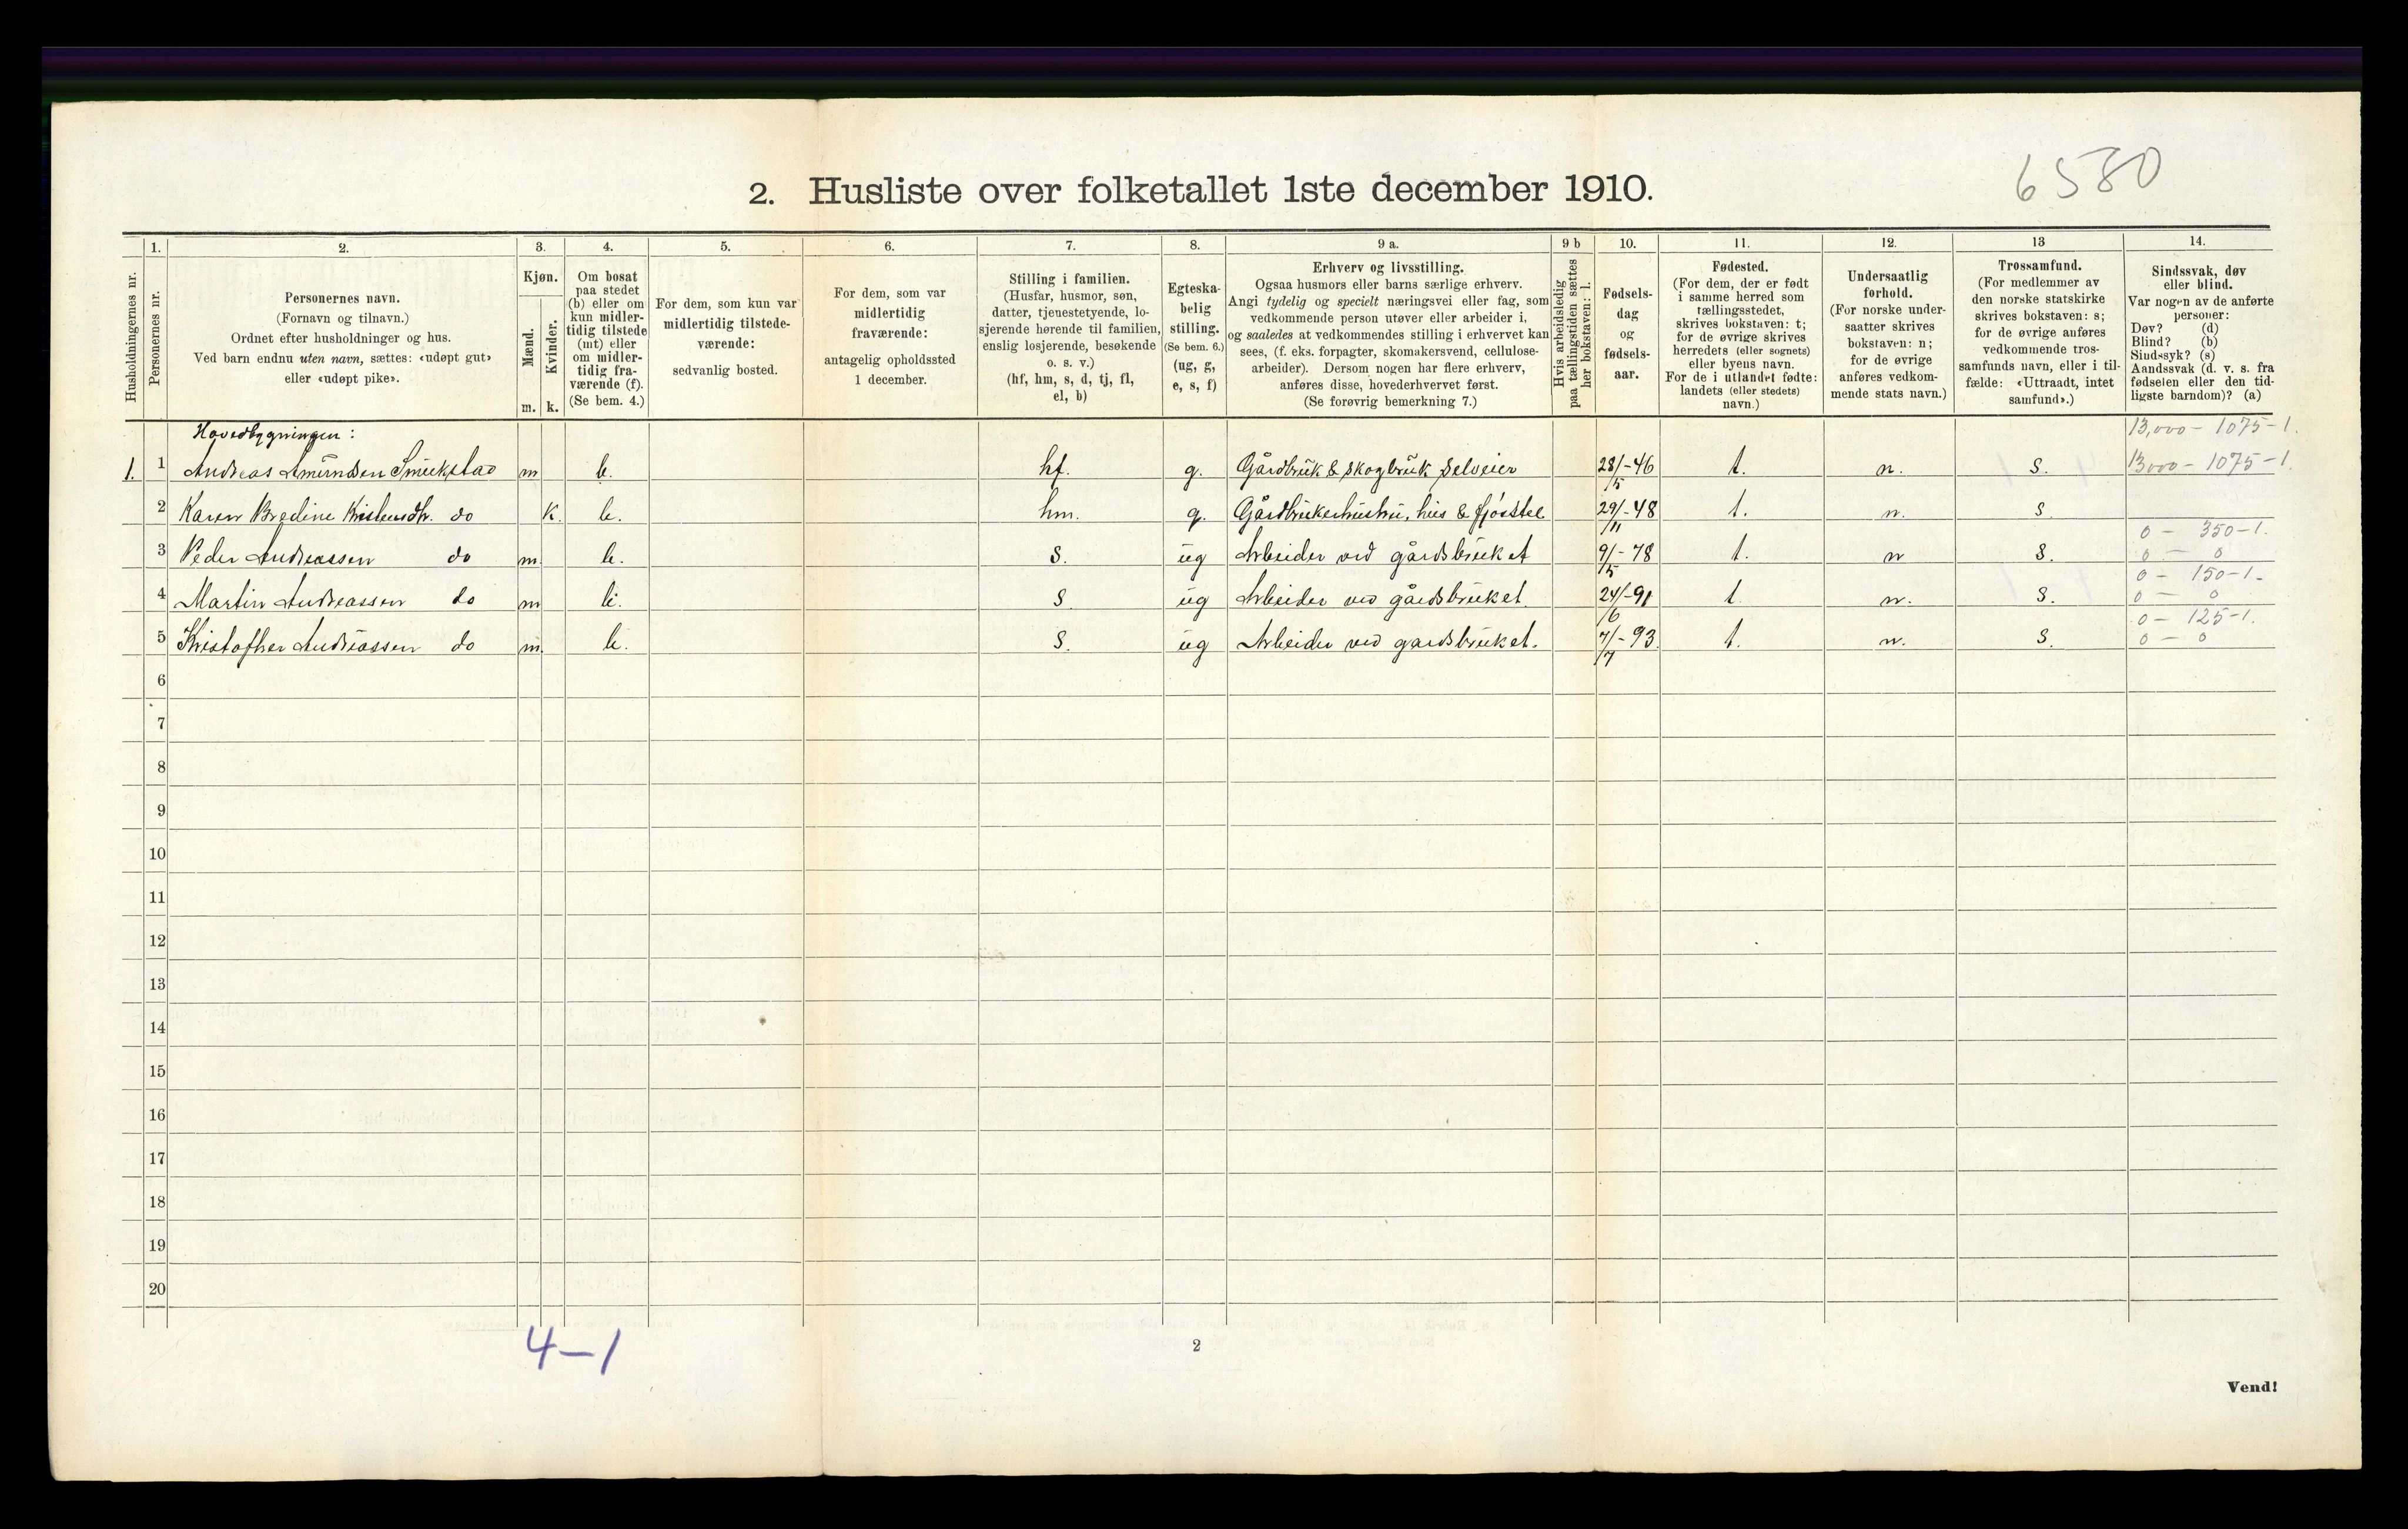 6580
2. Husliste over folketallet 1ste december 1910.
Husholdningernes nr.
1.
Personernes nr.
2.
Personernes navn.
(Fornavn og tilnavn.)
Ordnet efter husholdninger og hus.
Ved barn endnu uten navn, sættes: «udøpt gut»
eller «udøpt pike».
3.
Kjøn.
Mænd.
Kvinder.
m. k.
4.
Om bosat
paa stedet
(b) eller om
kun midler-
tidig tilstede
(mt) eller
om midler-
tidig fra-
værende (f).
(Se bem. 4.)
5.
For dem, som kun var
midlertidig tilstede-
værende:
sedvanlig bosted.
6.
For dem, som var
midlertidig
fraværende:
antagelig opholdssted
1 december.
7.
Stilling i familien.
(Husfar, husmor, søn,
datter, tjenestetyende, lo-
sjerende hørende til familien,
enslig losjerende, besøkende
o. s. v.)
(hf, hm, s, d, tj, fl,
el, b)
8.
Egteska-
belig
stilling.
(Se bem. 6.)
(ug, g,
e, s, f)
9 a.
Erhverv og livsstilling.
Ogsaa husmors eller barns særlige erhverv.
Angi tydelig og specielt næringsvei eller fag, som
vedkommende person utøver eller arbeider i,
og saaledes at vedkommendes stilling i erhvervet kan
sees, (f. eks. forpagter, skomakersvend, cellulose-
arbeider). Dersom nogen har flere erhverv,
anføres disse, hovederhvervet først.
(Se forøvrig bemerkning 7.)
9 b
Hvis arbeidsledig
paa tællingstiden sættes
her bokstaven: l.
10.
Fødsels-
dag
og
fødsels-
aar.
11.
Fødested.
(For dem, der er født
i samme herred som
tællingsstedet,
skrives bokstaven: t;
for de øvrige skrives
herredets (eller sognets)
eller byens navn.
For de i utlandet fødte:
landets (eller stedets)
navn.)
12.
Undersaatlig
forhold.
(For norske under-
saatter skrives
bokstaven: n;
for de øvrige
anføres vedkom-
mende stats navn.)
13
Trossamfund.
(For medlemmer av
den norske statskirke
skrives bokstaven: s;
for de øvrige anføres
vedkommende tros-
samfunds navn, eller i til-
fælde: «Uttraadt, intet
samfund».)
14.
Sindssvak, døv
eller blind.
Var nogen av de anførte
personer:
Døv? (d)
Blind? (b)
Sindssyk? (s)
Aandssvak (d. v. s. fra
fødselen eller den tid-
ligste barndom)? (a)
Hovedbygningen: 13,000 - 1075 - 1.
1. 1 Andreas Amundsen Smukstad m b. hf. g. Gårdbruk & skogbruk selveier 28/5 - 46 t. n. s. 13000 - 1075 - 1.
2 Karen Bredine Kristensdtr. do k. b. hm. g. Gårdbrukerhustru, hus & fjøsstel 29/11 - 48 t. n. s
0 - 350 - 1.
3 Peder Andreassen do m. b. s. ug Arbeider ved gårdsbruket 9/5 - 78 t. n s. 0 - 0
0 - 150 - 1.
4 Martin Andreassen do m b. s ug Arbeider ved gårdsbruket. 24/6 - 91 t. n. s. 0 - 0
0 - 125 - 1.
5 Kristofher Andreassen do m. b. s. ug Arbeider ved gardsbruket. 7/7 - 93. t. n. s. 0 - 0
6
7
8
9
10
11
12
13
14
15
16
17
18
19
20
4-1
2
Vend!